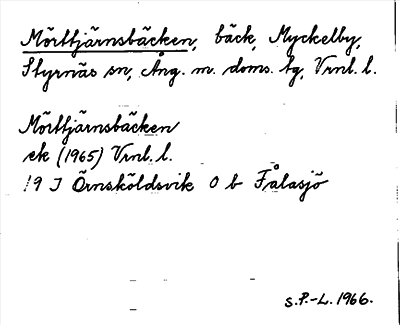 Mörttjärnsbäcken, bäck, Myckelby,
Styrnäs sn, Ång. m. doms. tg, Vrnl. l.
Mörttjärnsbäcken
ek (1965) Vrnl. l.
19 J Örnsköldsvik 0 b Fålasjö
S.P.-L. 1966.